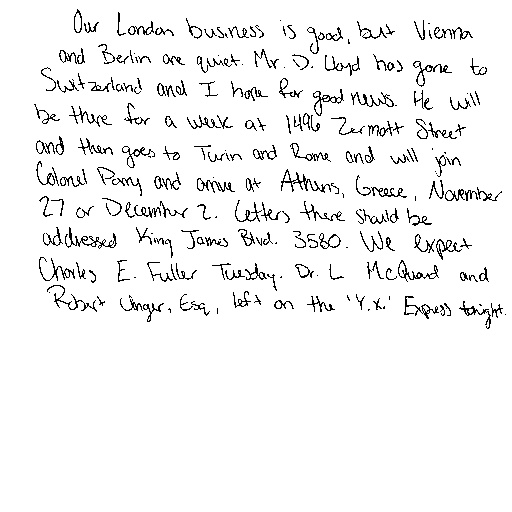 Our London business is good, but Vienna
and Berlin are quiet. Mr. D. Lloyd has gone to
Switzerland and I hope for good news. He will
be there for a week at 1496 Zermott Street
and then goes to Turin and Rome and will join
Colonel Parry and arrive at Athens, Greece, November
27 or December 2. Letters there should be
addressed King James Blvd. 3580. We expect
Charles E. Fuller Tuesday. Dr. L McQuaid and
Robert Unger, Esq., left on the 'Y.X.' Express tonight.